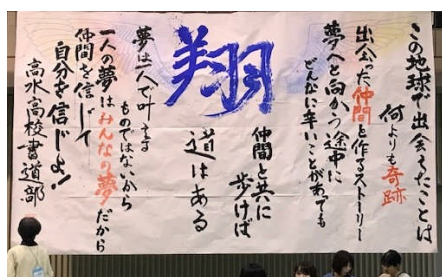 この地球で出会えたことは
何よりも奇跡
出会った仲間と作るストーリー
夢へと向かう途中に
どんなに辛いことがあっても
翔
仲間と共に
歩けば
道はある
夢は一人で叶える
ものではないから
一人の夢はみんなの夢だから
仲間を信じて
自分を信じよ!
高水高校書道部